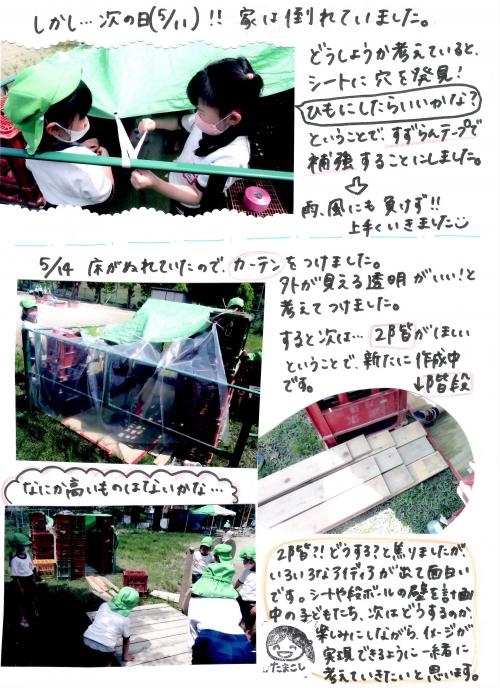 しかし…次の日(5/11)!! 家は倒れていました。
どうしようか考えていると、
シートに穴を発見!
ひもにしたらいいかな?
ということで、すずらんテープで
補強することにしました。
雨、風にも負けず!!
上手くいきました
5/14 床がぬれていたので、カーテンをつけました。
外が見える透明がいい!と
考えてつけました。
すると次は…2階がほしい
ということで、新たに作成中
です。
階段
なにか高いものはないかな…
2階?!どうする?と焦りましたが
いろいろなアイディアが出て面白い
です。シートや段ボールの壁を計画
中の子どもたち、次はどうするのか、
楽しみにしながら、イメージが
実現できるように一緒に
考えていきたいと思います。
たまこし